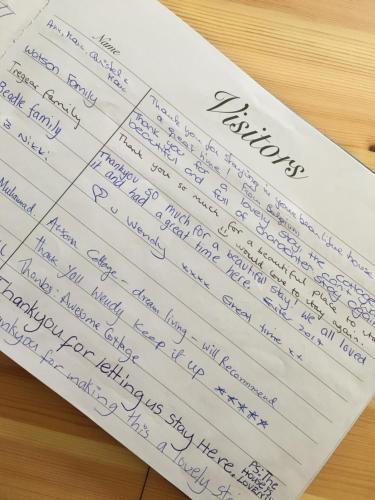 Name
Visitors
Ann, Marc, Christel &
Marc
Thank you for staying in your beautifull house
a great time! From Belgium
Watson Family
Thank you for a lovely stay, the cottage
beautiful and full of
Tregear Family
Thank you so much for a beautiful place to
would love to stay again
Beadle family
Thankyou so much for a beautiful stay! We all loved
it and had a great time here. 2017
& Nikki
♡ u Wendy xxxx Great time xx
Muhammad.
College - dream living - will Recommend
Thank you Wendy keep it up
Thanks. Awesome Cottage
Thankyou for letting us stay Here.
PS: The
House is
Lovely
for making this a lovely st